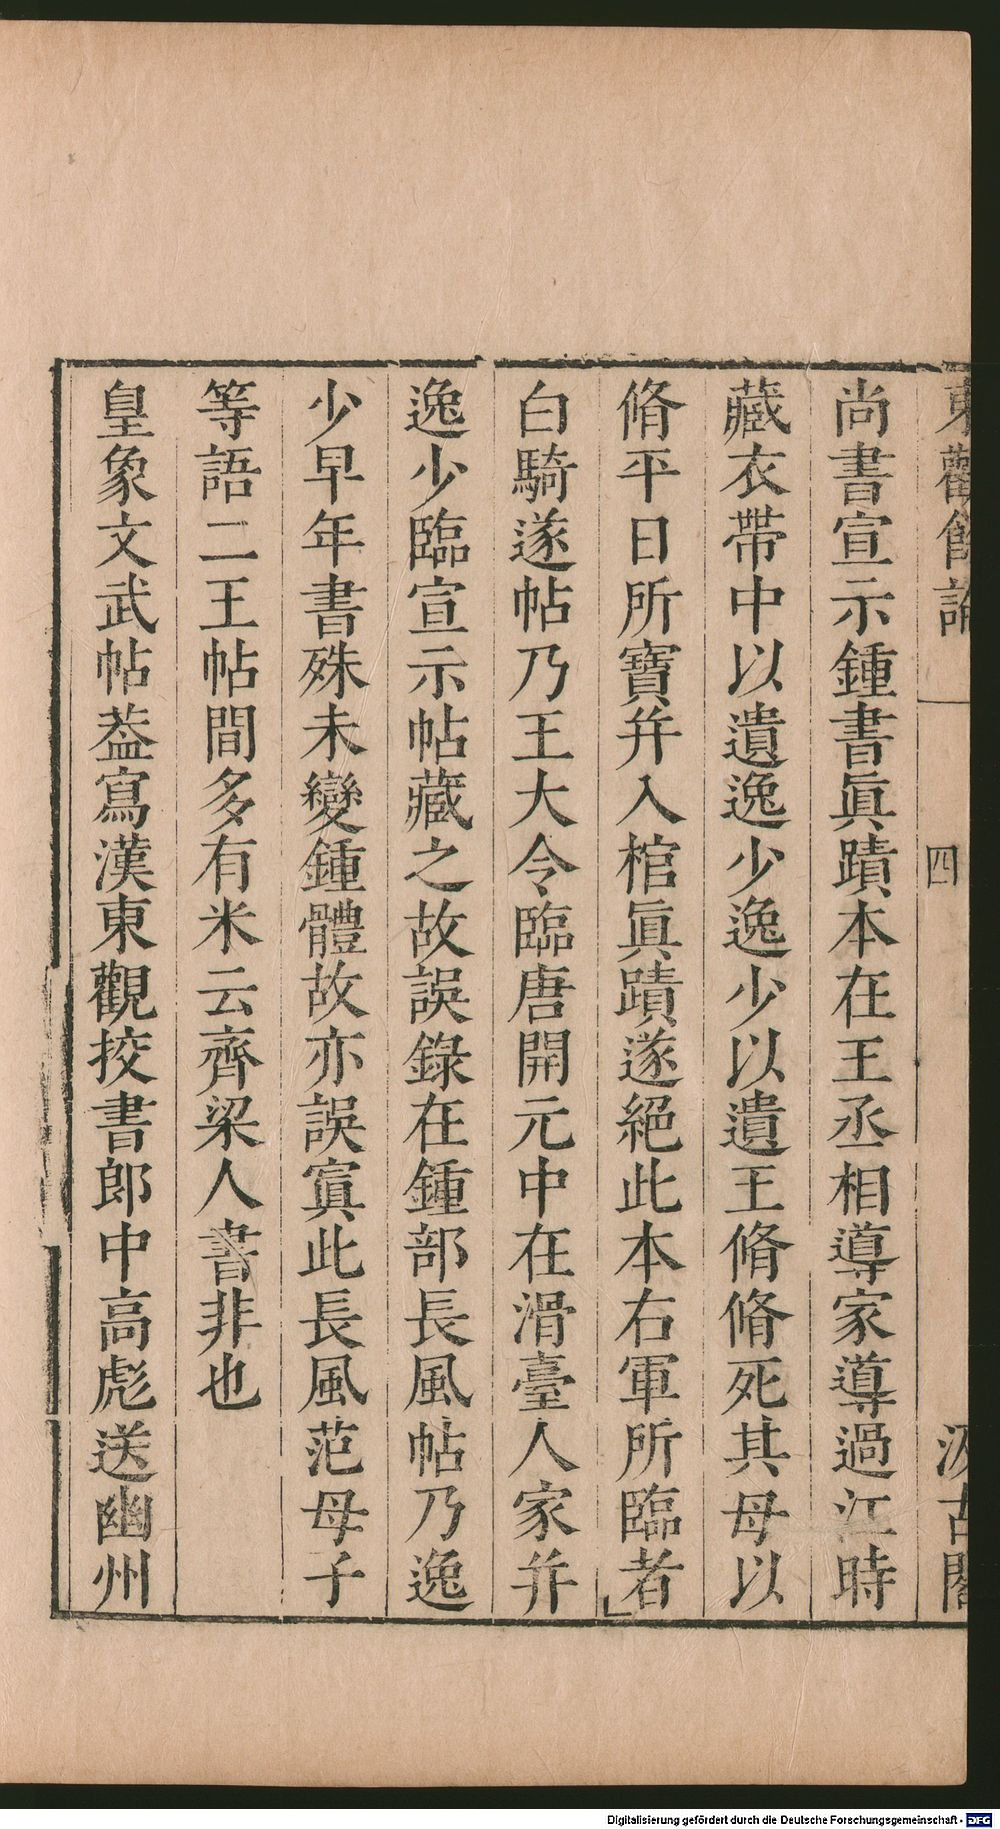 東觀餘論 一 四 汲古閣
尚書宣示鍾書眞蹟本在王丞相導家導過江時
藏衣帶中以遺逸少逸少以遺王脩脩死其母以
脩平日所寶并入棺眞蹟遂絕此本右軍所臨者
白騎遂帖乃王大令臨唐開元中在滑臺人家并
逸少臨宣示帖藏之故誤錄在鍾部長風帖乃逸
少早年書殊未變鍾體故亦誤寘此長風范母子
等語二王帖間多有米云齊梁人書非也
皇象文武帖葢寫漢東觀挍書郎中高彪送幽州
Digitalisierung gefördert durch die Deutsche Forschungsgemeinschaft - DFG